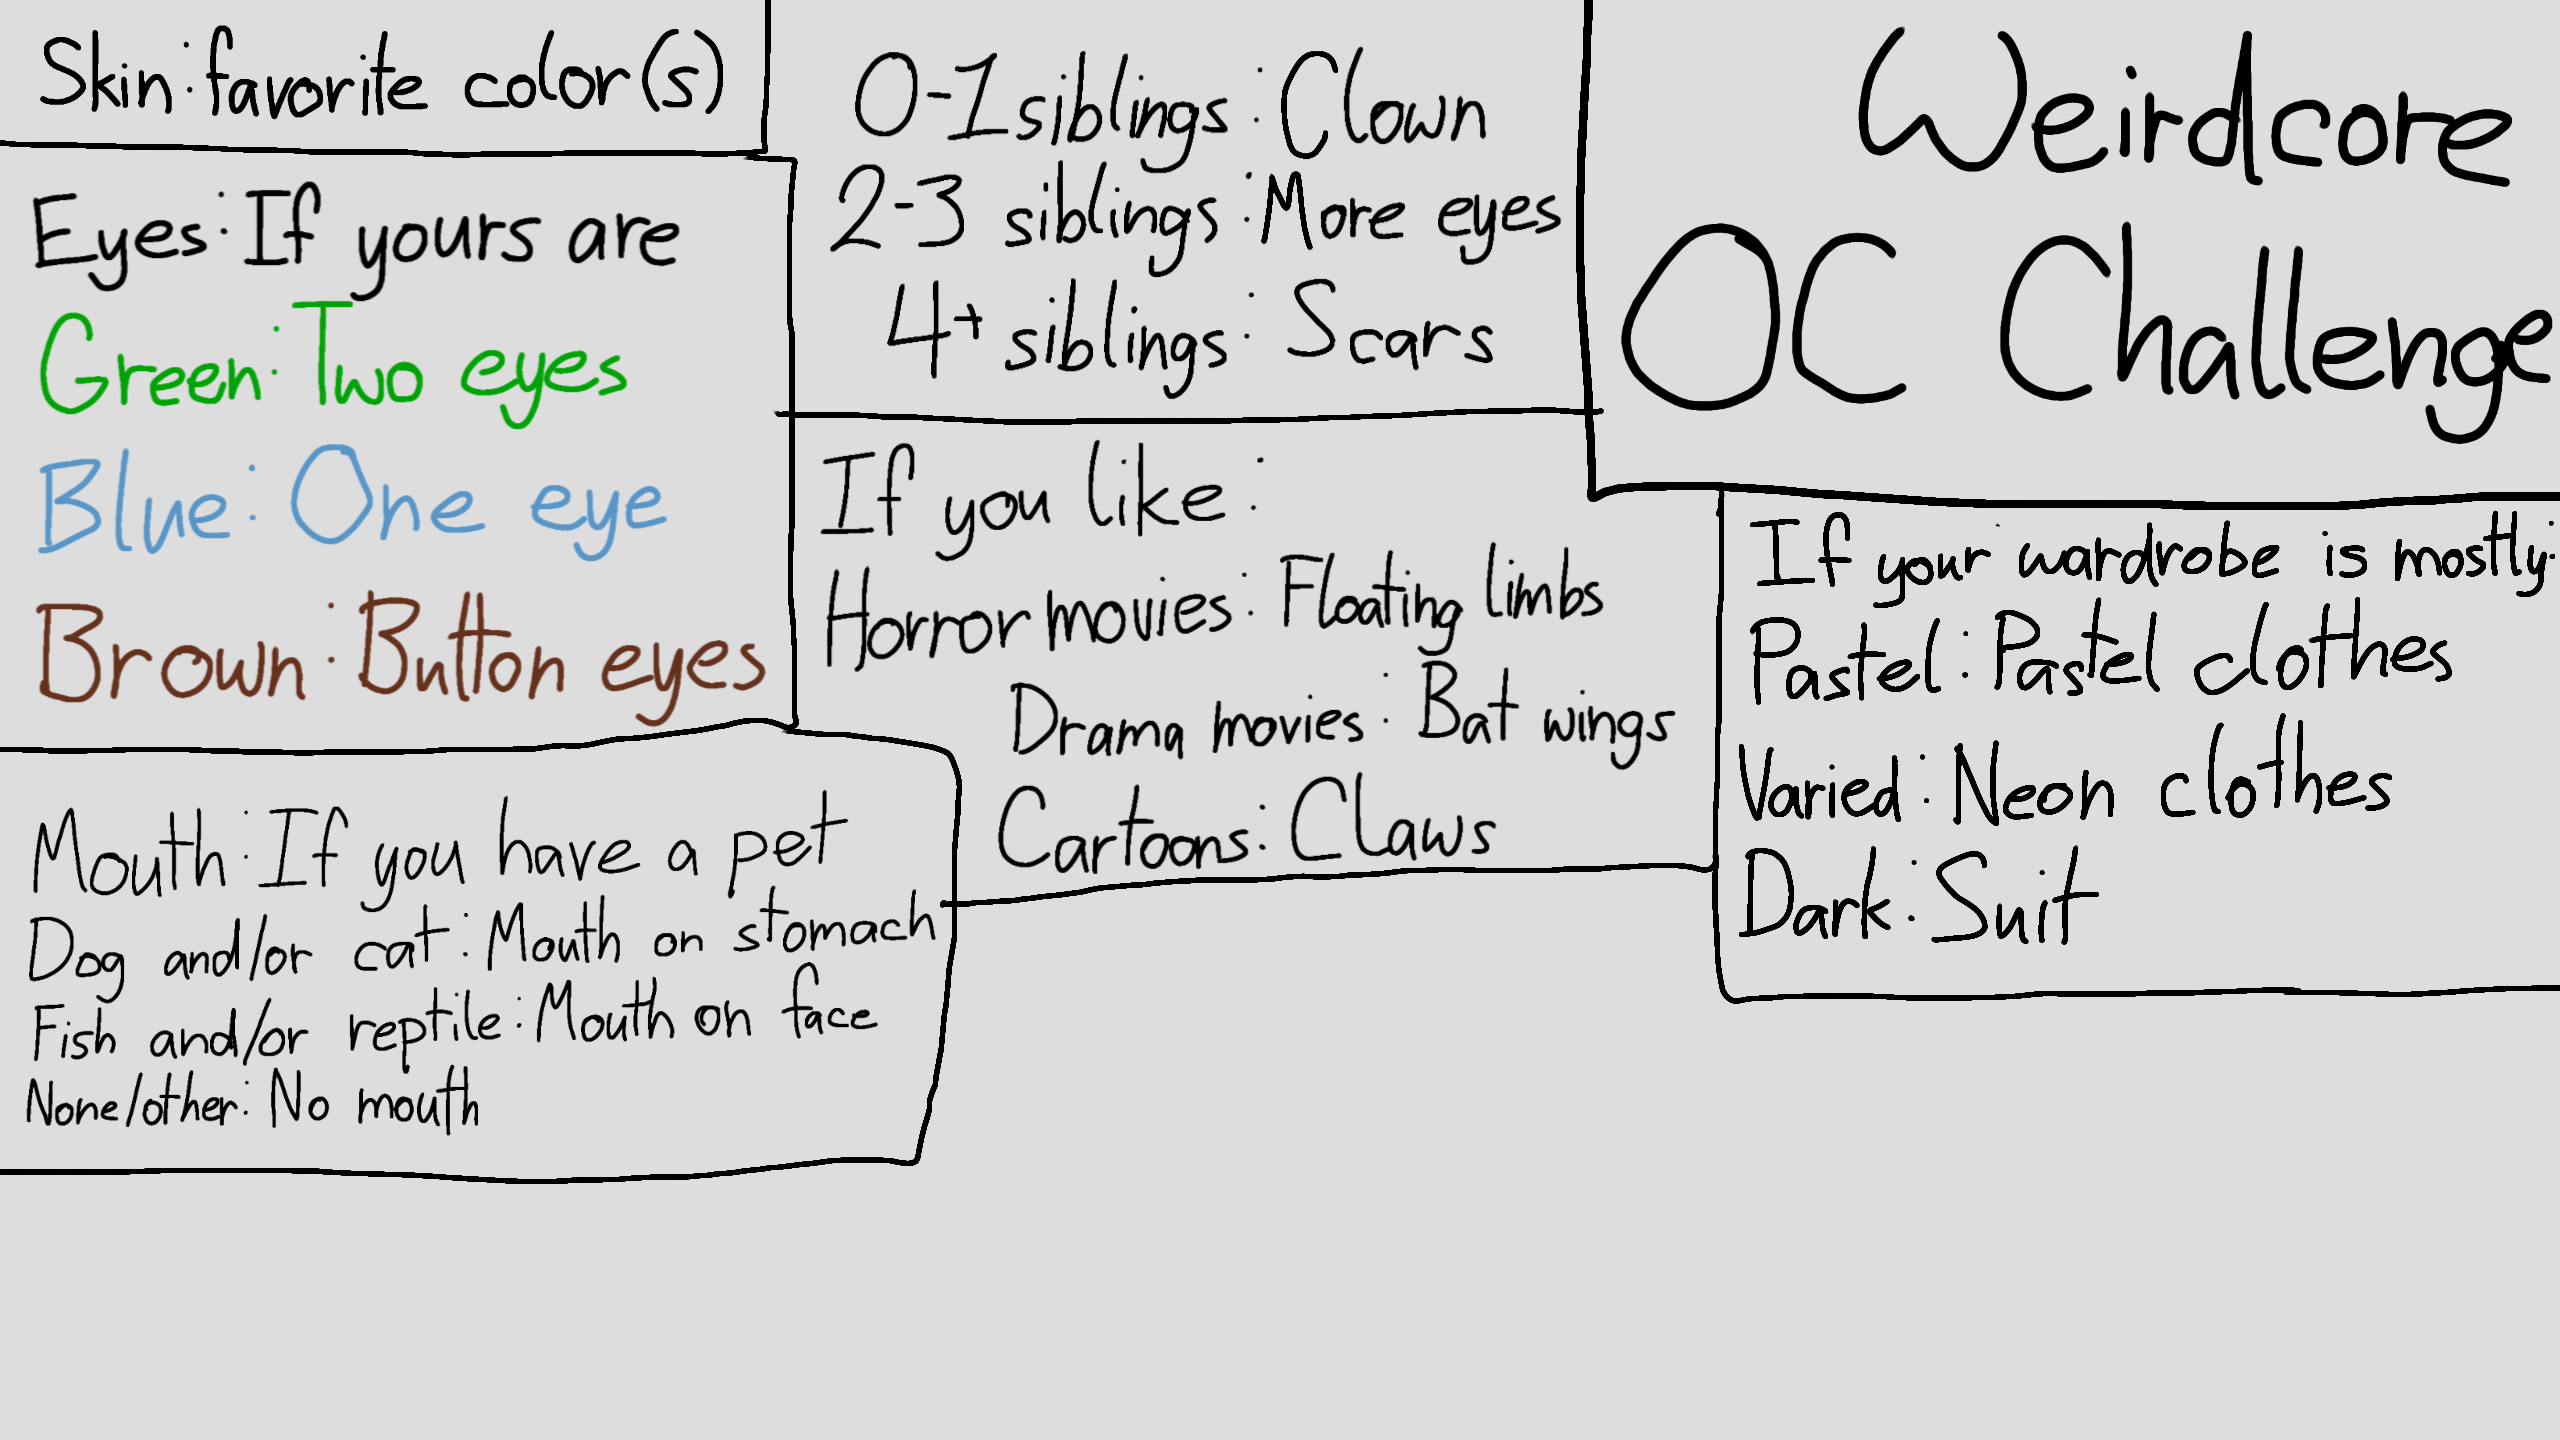 Skin: favorite color(s)
Eyes: If yours are
Green: Two eyes
Blue: One eye
Brown: Button eyes
Mouth: If you have a pet
Dog and/or cat: Mouth on stomach
Fish and/or reptile: Mouth on face
None/other: No mouth
0-1 siblings: Clown
2-3 siblings: More eyes
4+ siblings: Scars
If you like:
Horror movies: Floating limbs
Drama movies: Bat wings
Cartoons: Claws
Weirdcore
OC Challenge
If your wardrobe is mostly:
Pastel: Pastel clothes
Varied: Neon clothes
Dark: Suit